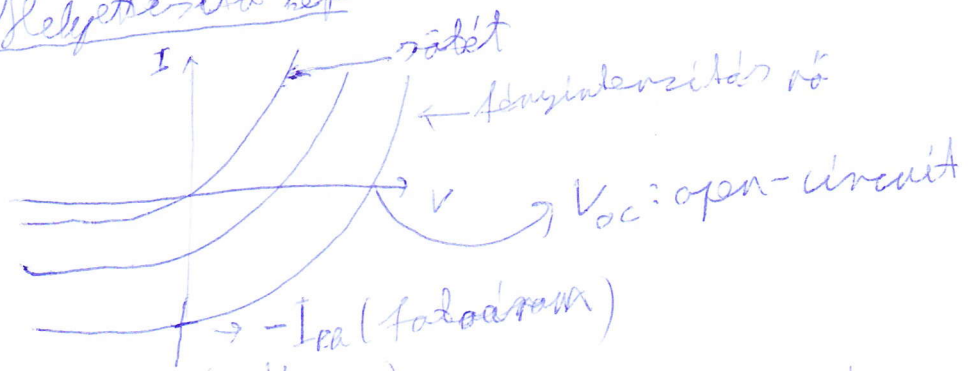 Helyettesítő kép
I
sötét
← fényintenzitás nő
V
V_oc: open-circuit
→ -I_PH (fotoáram)